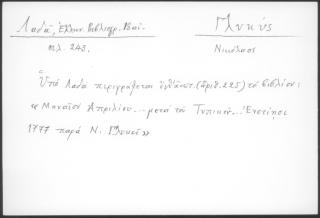 Λαδᾶ, Ἑλλην. Βιβλιογρ. Βαϊ-
Γλυκύς
σελ. 243.
Νικόλαος
Ὑπὸ Λαδᾶ περιγράφεται (ἀριθ. 225) τὸ βιβλίον:
«Μηναῖον Ἀπριλίου... μετὰ τοῦ Τυπικοῦ... Ἐνετίῃσι
1777 παρὰ Ν. Γλυκεῖ»